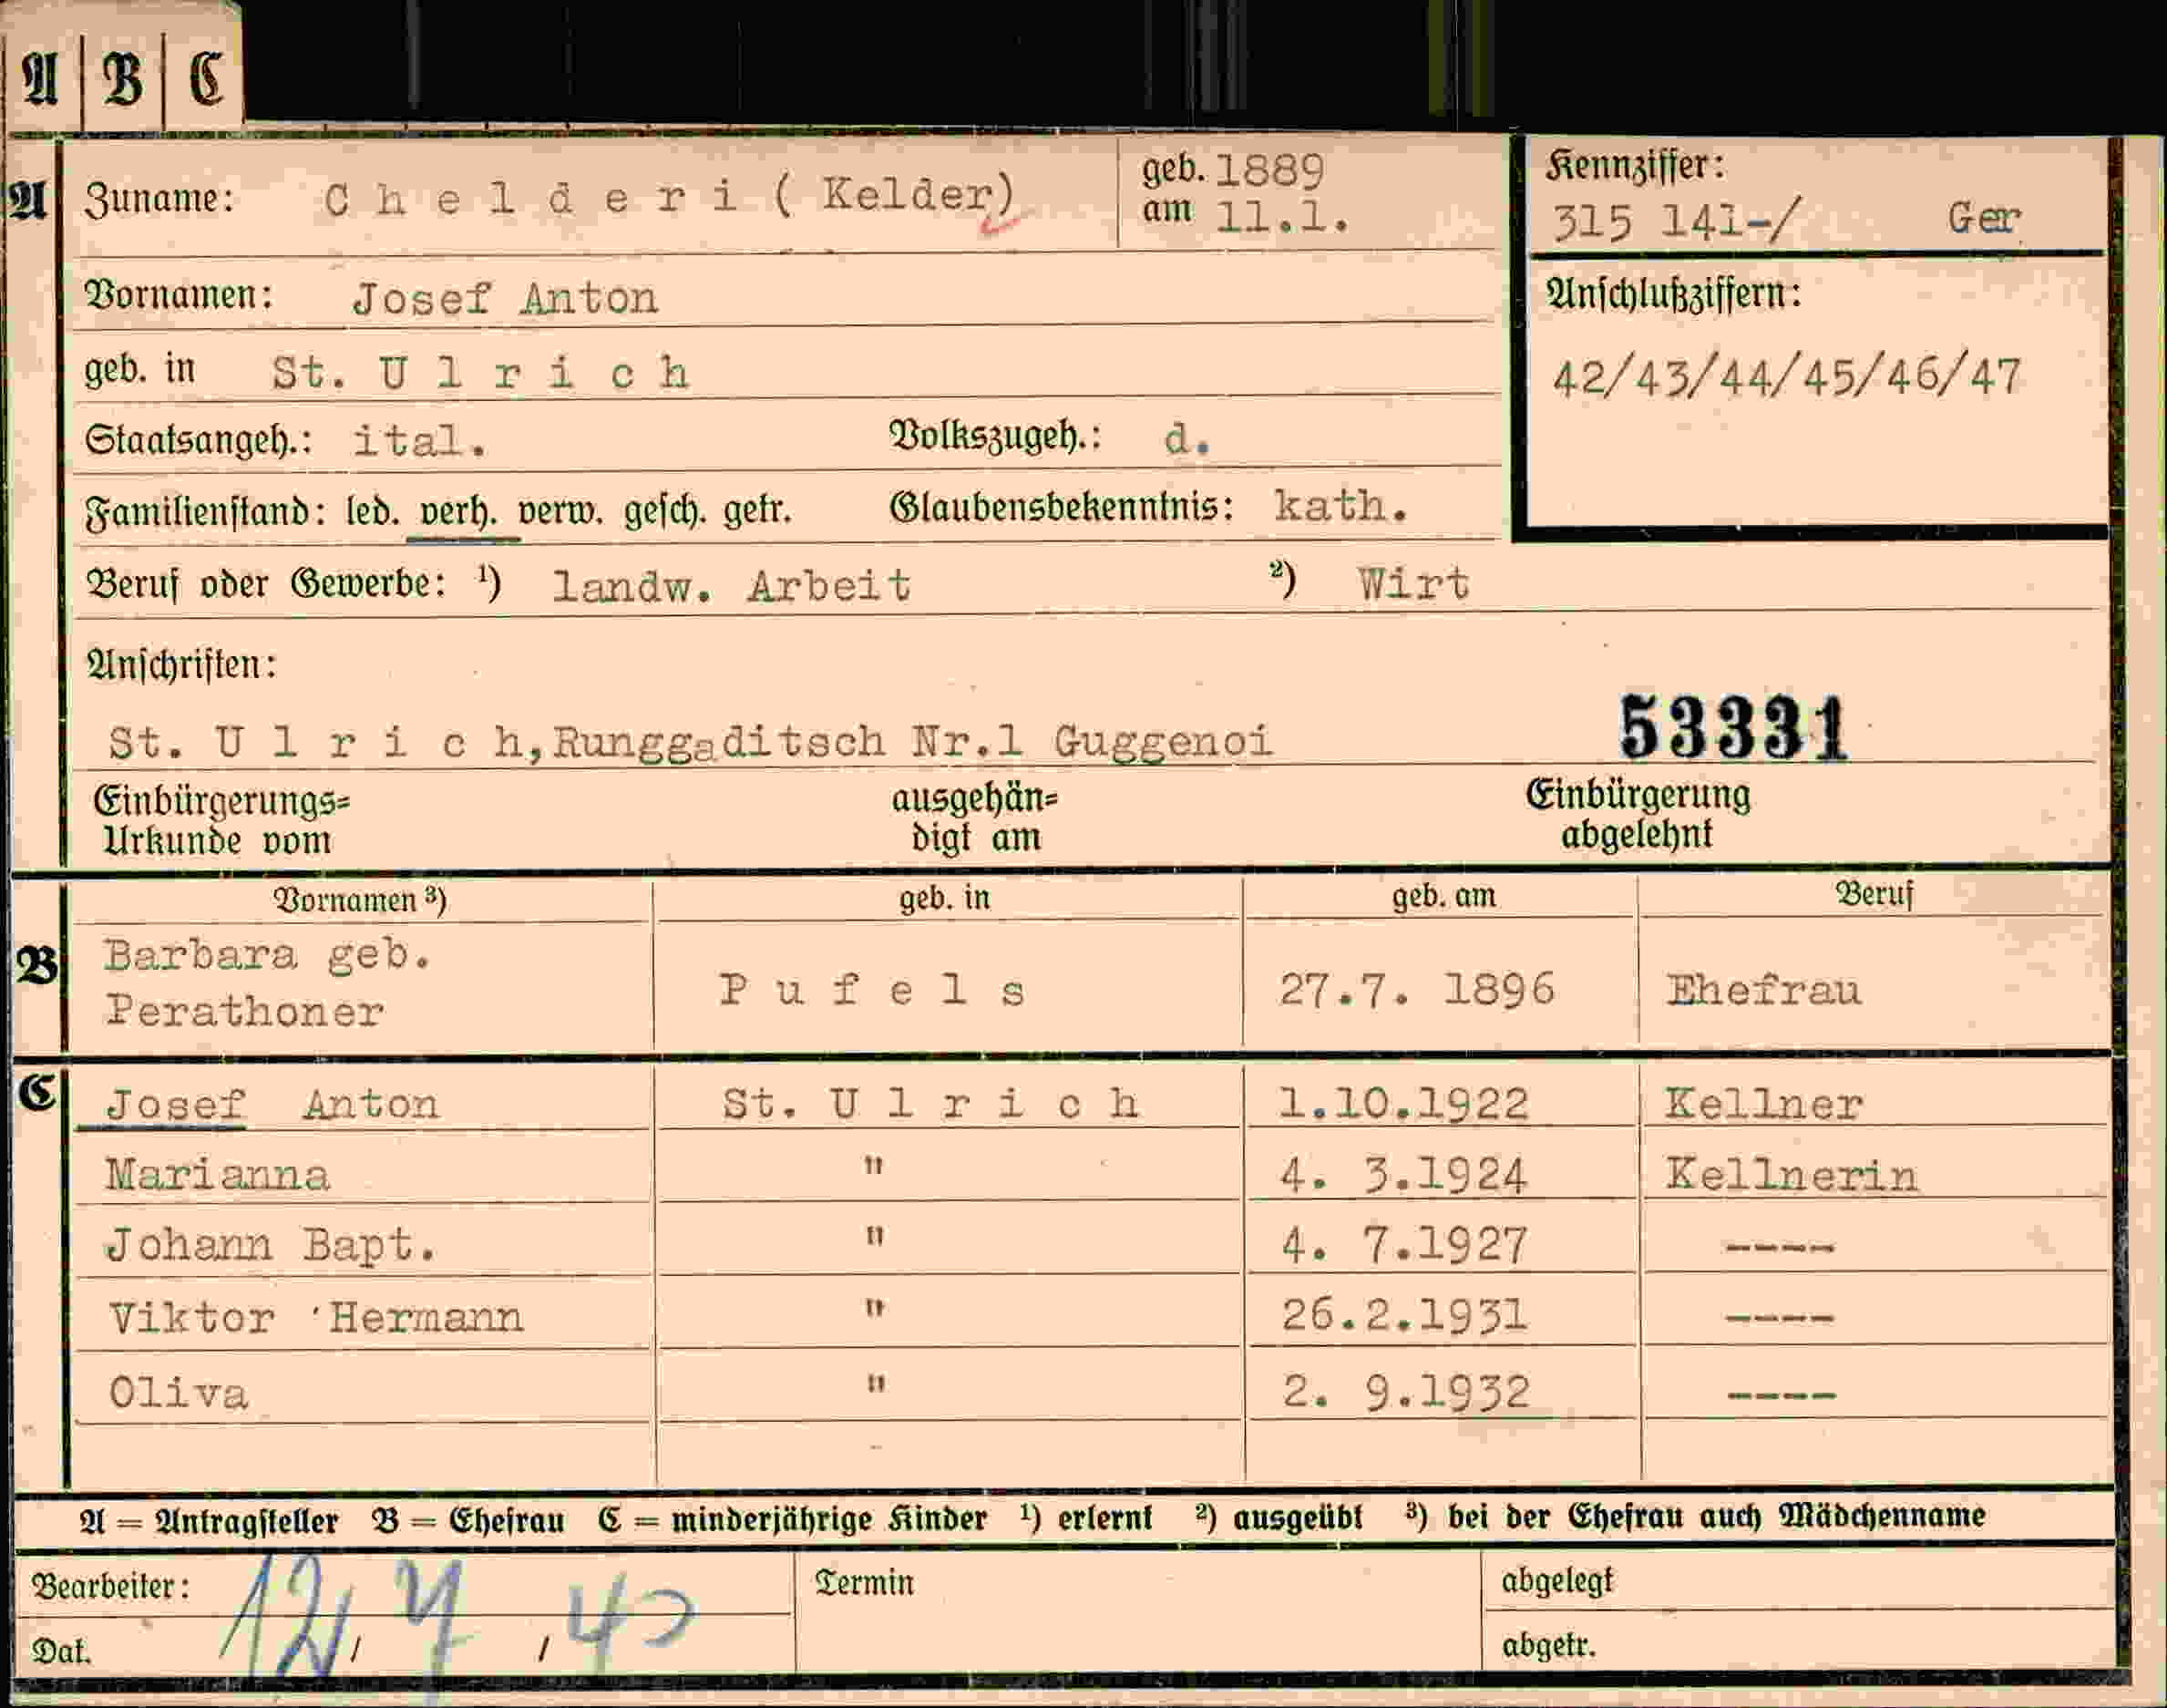 A B C
A Zuname: Chelderi (Kelder) geb. am 1889 11.1.
Kennziffer:
315 141-/ Ger
Vornamen: Josef Anton
Anschlußziffern:
42/43/44/45/46/47
geb. in St. Ulrich
Staatsangeh.: ital. Volkszugeh.: d.
Familienstand: led. verh. verw. gesch. getr. Glaubensbekenntnis: kath.
Beruf oder Gewerbe: ¹) landw. Arbeit ²) Wirt
Anschriften:
St. Ulrich, Runggaditsch Nr.1 Guggenoi 53331
Einbürgerungs= ausgehän= Einbürgerung
Urkunde vom digt am abgelehnt
Vornamen ³) geb. in geb. am Beruf
B Barbara geb.
Perathoner Pufels 27.7. 1896 Ehefrau
C Josef Anton St. Ulrich 1.10.1922 Kellner
Marianna " 4. 3.1924 Kellnerin
Johann Bapt. " 4. 7.1927 ----
Viktor Hermann " 26.2.1931 ----
Oliva " 2. 9.1932 ----
A = Antragsteller B = Ehefrau C = minderjährige Kinder ¹) erlernt ²) ausgeübt ³) bei der Ehefrau auch Mädchenname
Bearbeiter: Termin abgelegt
Dat. 12/7/40 abgetr.